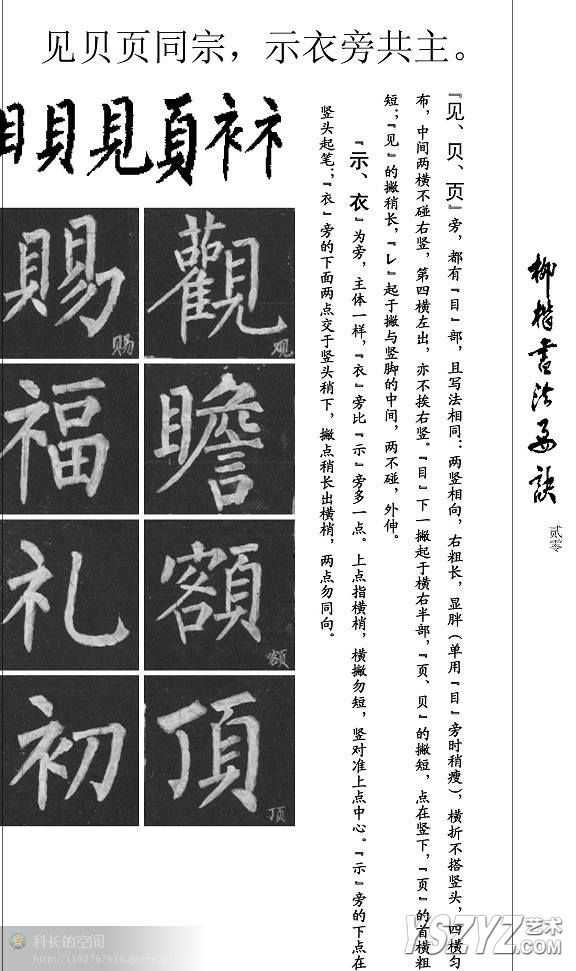 见贝页同宗，示衣旁共主。
柳楷書法要訣
贰零
『见、贝、页』旁，都有『目』部，且写法相同：两竖相向，右粗长，显胖（单用『目』旁时稍瘦），横折不搭竖头，四横匀
布，中间两横不碰右竖，第四横左出，亦不挨右竖。『目』下一撇起于横右半部，『页、贝』的撇短，点在竖下，『页』的首横粗
短；『见』的撇稍长，『乚』起于撇与竖脚的中间，两不碰，外伸。
『示、衣』为旁，主体一样，『衣』旁比『示』旁多一点。上点指横梢，横撇勿短，竖对准上点中心。『示』旁的下点在
竖头起笔；『衣』旁的下面两点交于竖头稍下，撇点稍长出横梢，两点勿同向。
目貝見頁衤礻
觀 观
瞻
額 额
頂 顶
賜 赐
福
礼
初
科长的空间
YSZYZ艺术